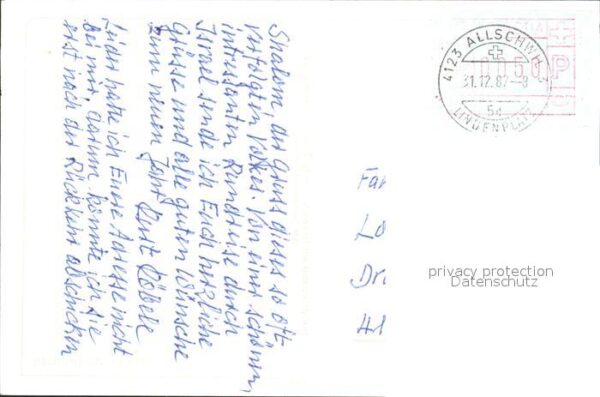 Shalom, der Gruss dieses so oft
verfolgten Volkes. Von einer schönen,
intressanten Rundreise durch
Israel sende ich Euch herzliche
Grüsse und alle guten Wünsche
zum neuen Jahr
Leider hatte ich Eure Adresse nicht
bei mir, darum konnte ich sie
erst nach der Rückkehr abschicken
4123 ALLSCHWIL
31.12.87-8
5d
LINDENPLATZ
050
P
Fam
Lo
Dr
41
privacy protection
Datenschutz